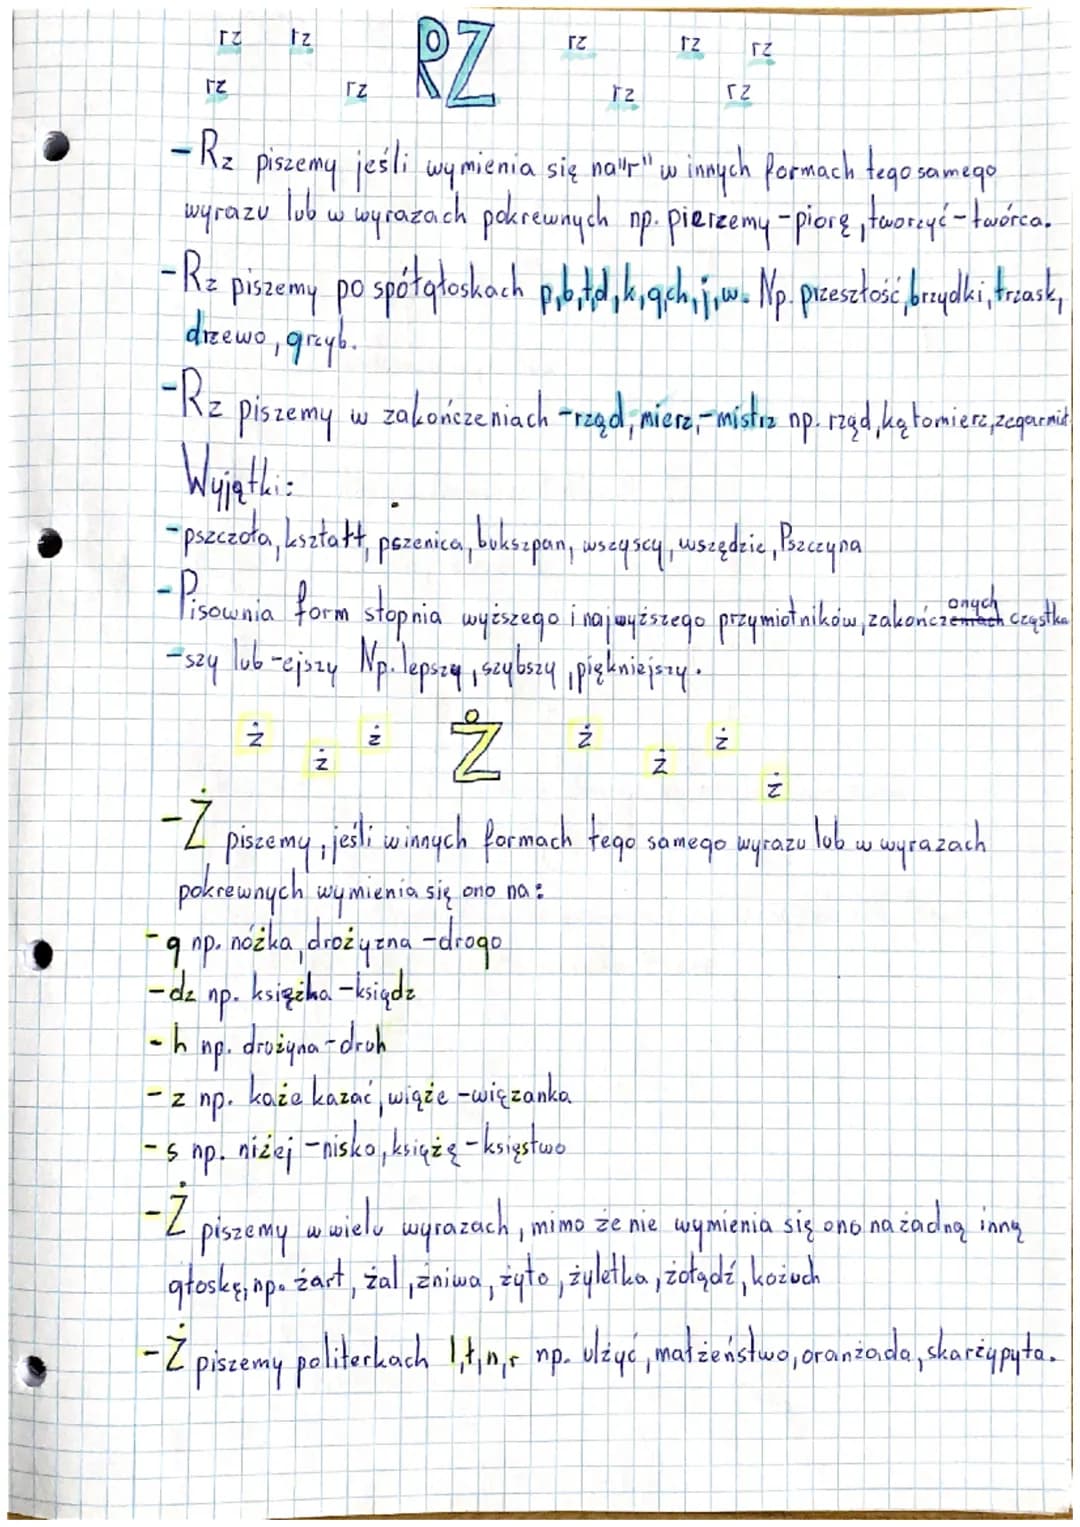 rz rz RZ rz rz rz
rz rz rz rz
- Rz piszemy jeśli wymienia się na "r" w innych formach tego samego
wyrazu lub w wyrazach pokrewnych np. pierzemy - piorę, tworzyć - twórca.
- Rz piszemy po spółgłoskach p,b,t,d,k,g,ch,j,w. Np. przeszłość, brzydki, trzask,
drzewo, grzyb.
- Rz piszemy w zakończeniach - rząd, mierz, - mistrz np. rząd, kątomierz, zegarmist
Wyjątki:
- pszczoła, kształt, pszenica, bukszpan, wszyscy, wszędzie, Pszczyna
- Pisownia form stopnia wyższego i najwyższego przymiotników, zakończonych cząstka
- szy lub -ejszy Np. lepszy, szybszy, piękniejszy.
ż ż ż Ż ż ż ż ż
- Ż piszemy, jeśli w innych formach tego samego wyrazu lub w wyrazach
pokrewnych wymienia się ono na:
- g np. nóżka, drożyzna - drogo
- dz np. książka - ksiądz
- h np. drużyna - druh
- z np. każe kazać, wiąże - wiązanka
- s np. niżej - nisko, książę - księstwo
- Ż piszemy w wielu wyrazach, mimo że nie wymienia się ono na żadną inną
głoskę, np. żart, żal, żniwa, żyto, żyletka, żołądź, kożuch
- Ż piszemy po literkach l,ł,n,r np. ulżyć, małżeństwo, oranżada, skarżypyta.